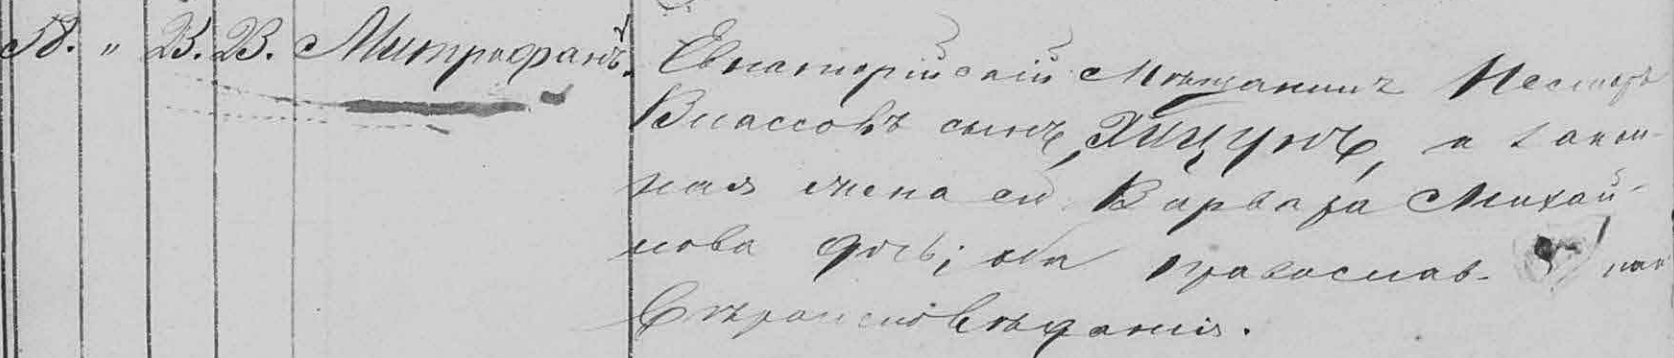 58. " 23. 23. Митрофанъ.
Евпаторійскій Мѣщанинъ Несторъ
Власовъ сынъ, и закон-
ная жена его Варвара Михай-
лова дочь; оба православ- наго
вѣроисповѣданія.